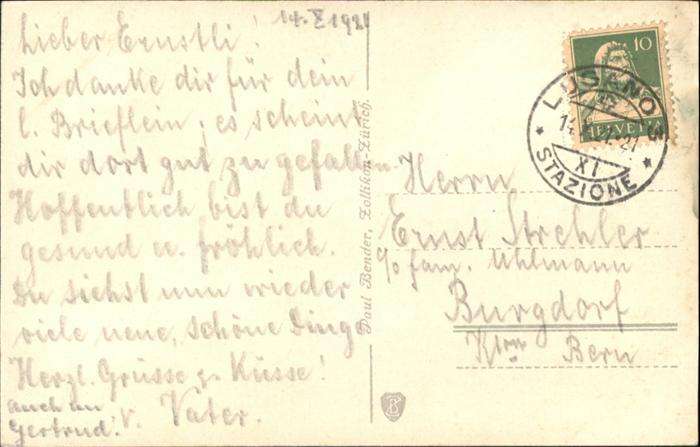 14. X 1924
Lieber Ernstli!
Ich danke dir für dein
l. Brieflein; es scheint
dir dort gut zu gefallen
Hoffentlich bist du
gesund u. fröhlich.
Du siehst nun wieder
viele neue, schöne Ding
Herzl. Grüsse & Küsse!
auch an
Gertrud.
v. Vater.
Paul Bender, Zollikon-Zürich.
10
HELVETIA
LUGANO
STAZIONE
XI
Herrn
Ernst Strehler
c/o fam. Uhlmann
Burgdorf
Ktn Bern